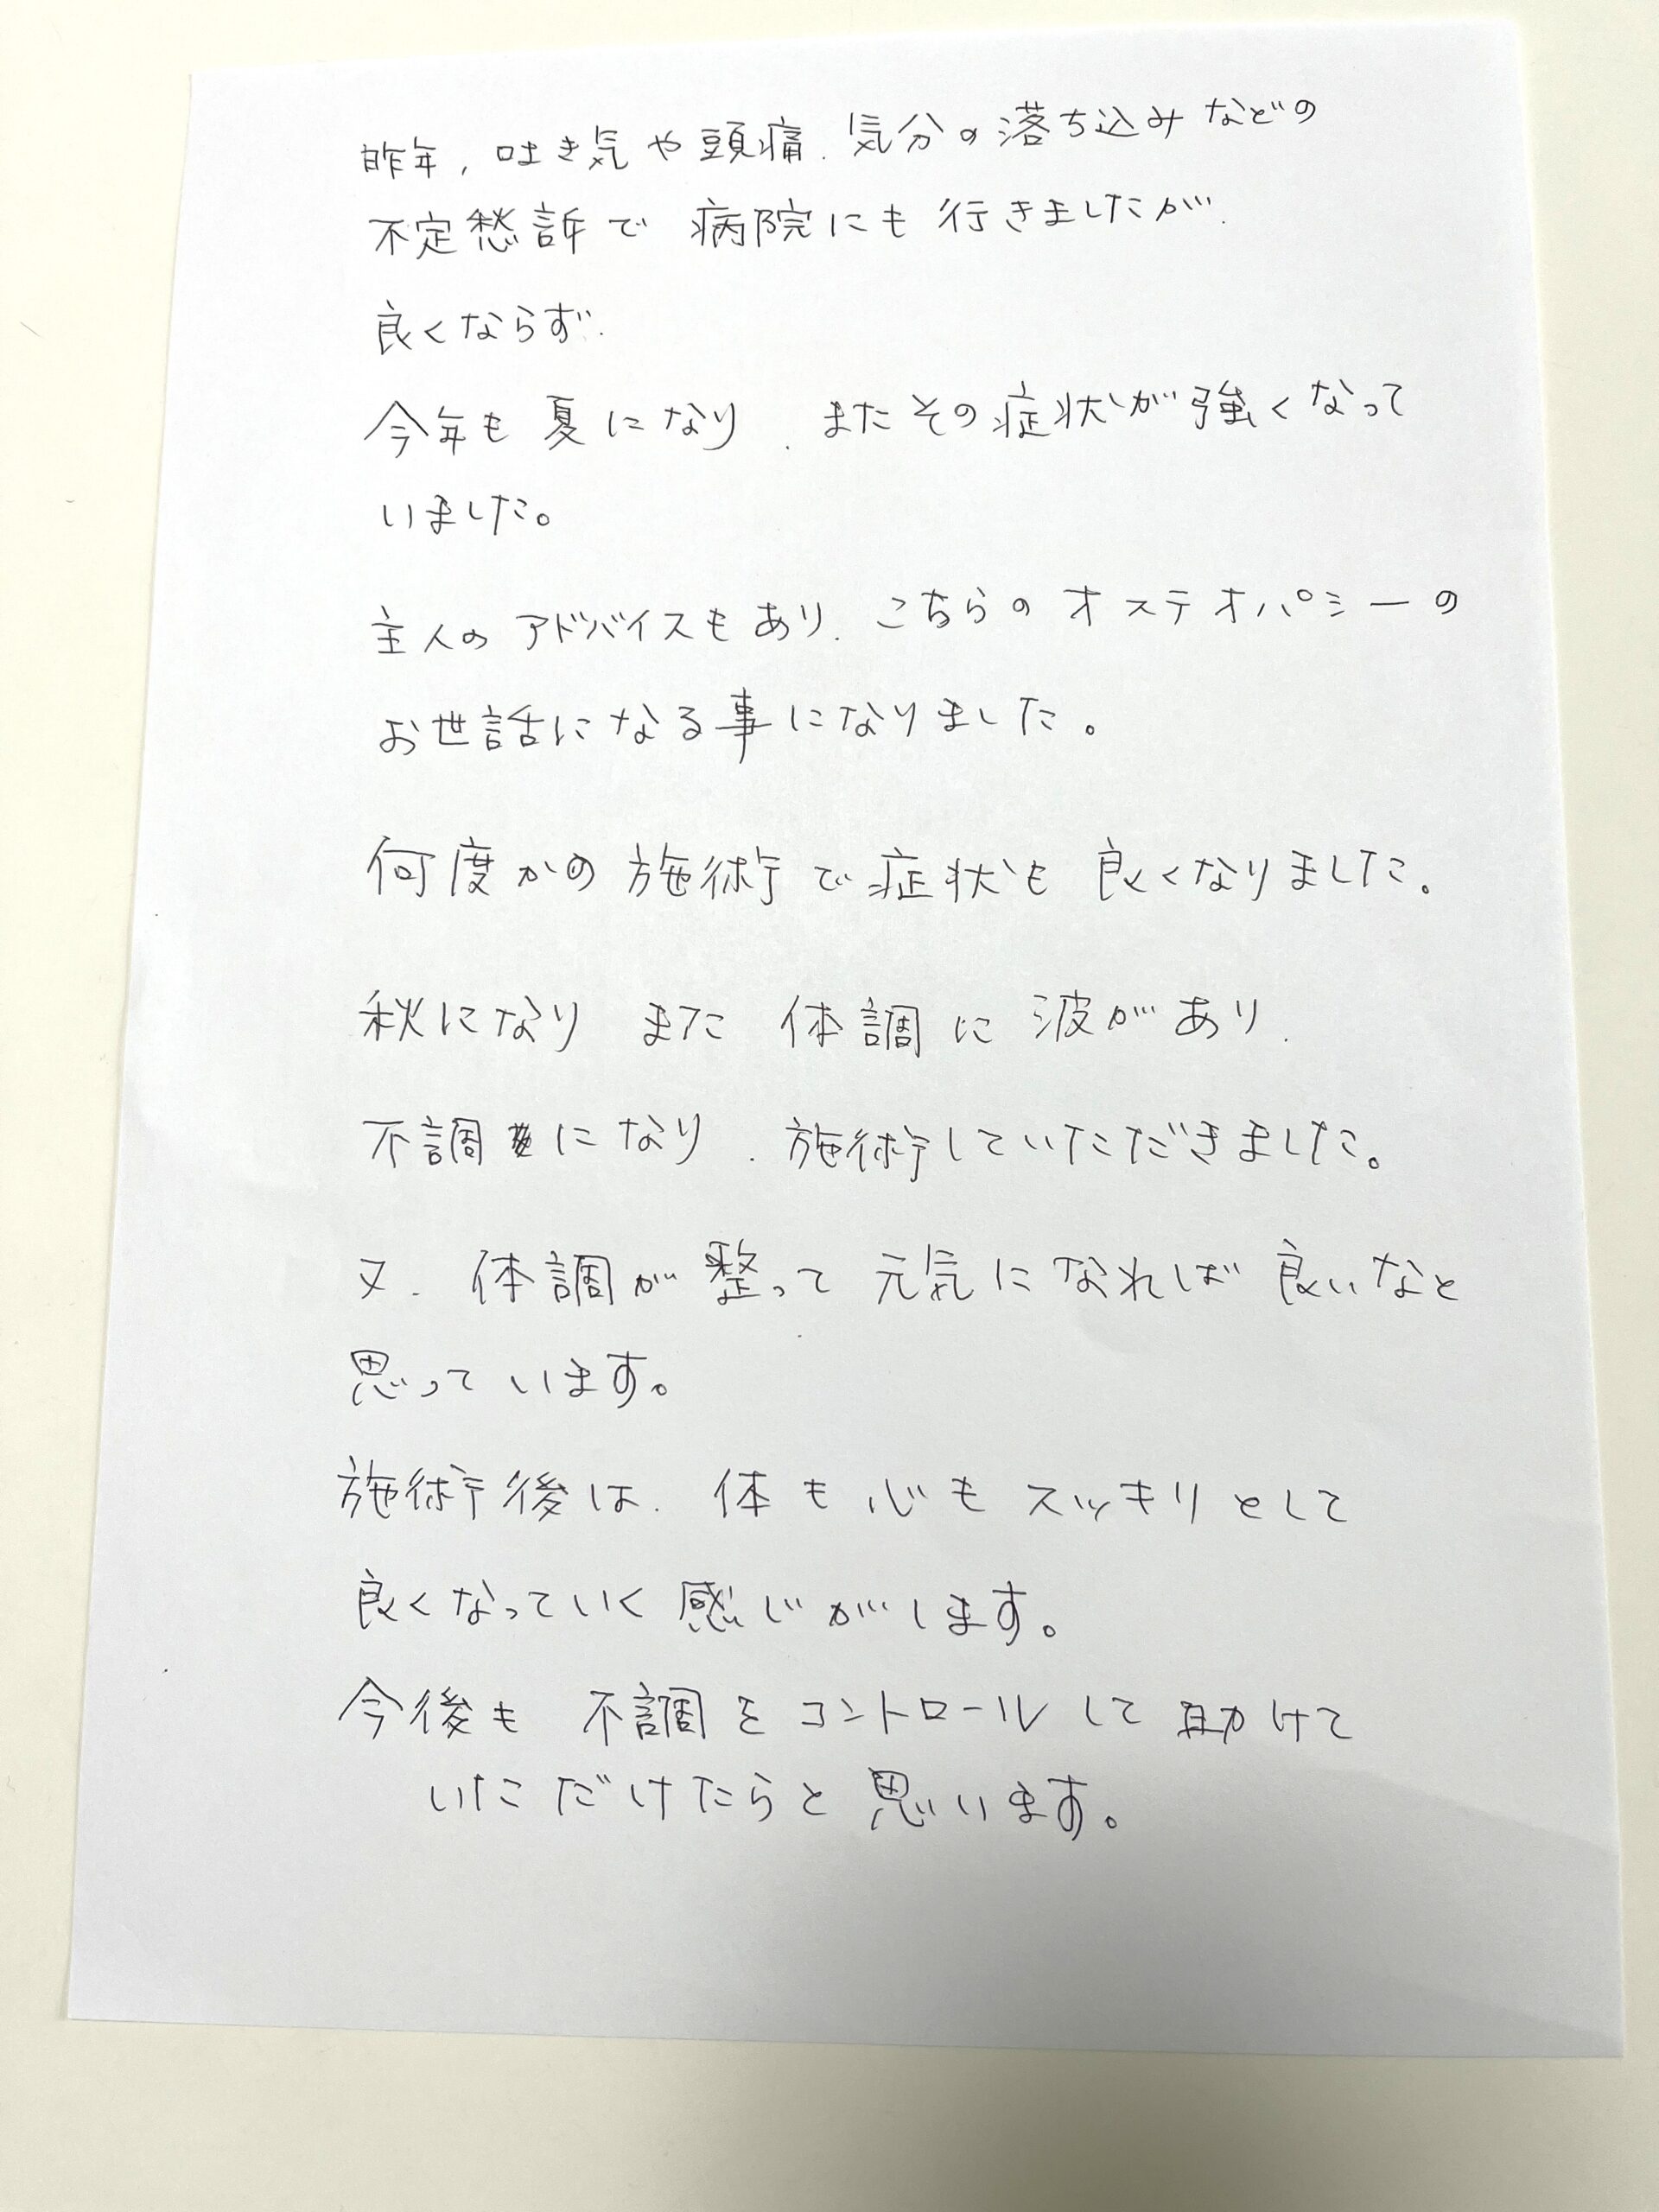 昨年、吐き気や頭痛、気分の落ち込みなどの
不定愁訴で病院にも行きましたが、
良くならず、
今年も夏になり、またその症状が強くなって
いました。
主人のアドバイスもあり、こちらのオステオパシーの
お世話になる事になりました。
何度かの施術で症状も良くなりました。
秋になりまた体調に波があり、
不調になり、施術していただきました。
又、体調が整って元気になれば良いなと
思っています。
施術後は、体も心もスッキリとして
良くなっていく感じがします。
今後も不調をコントロールして助けて
いただけたらと思います。